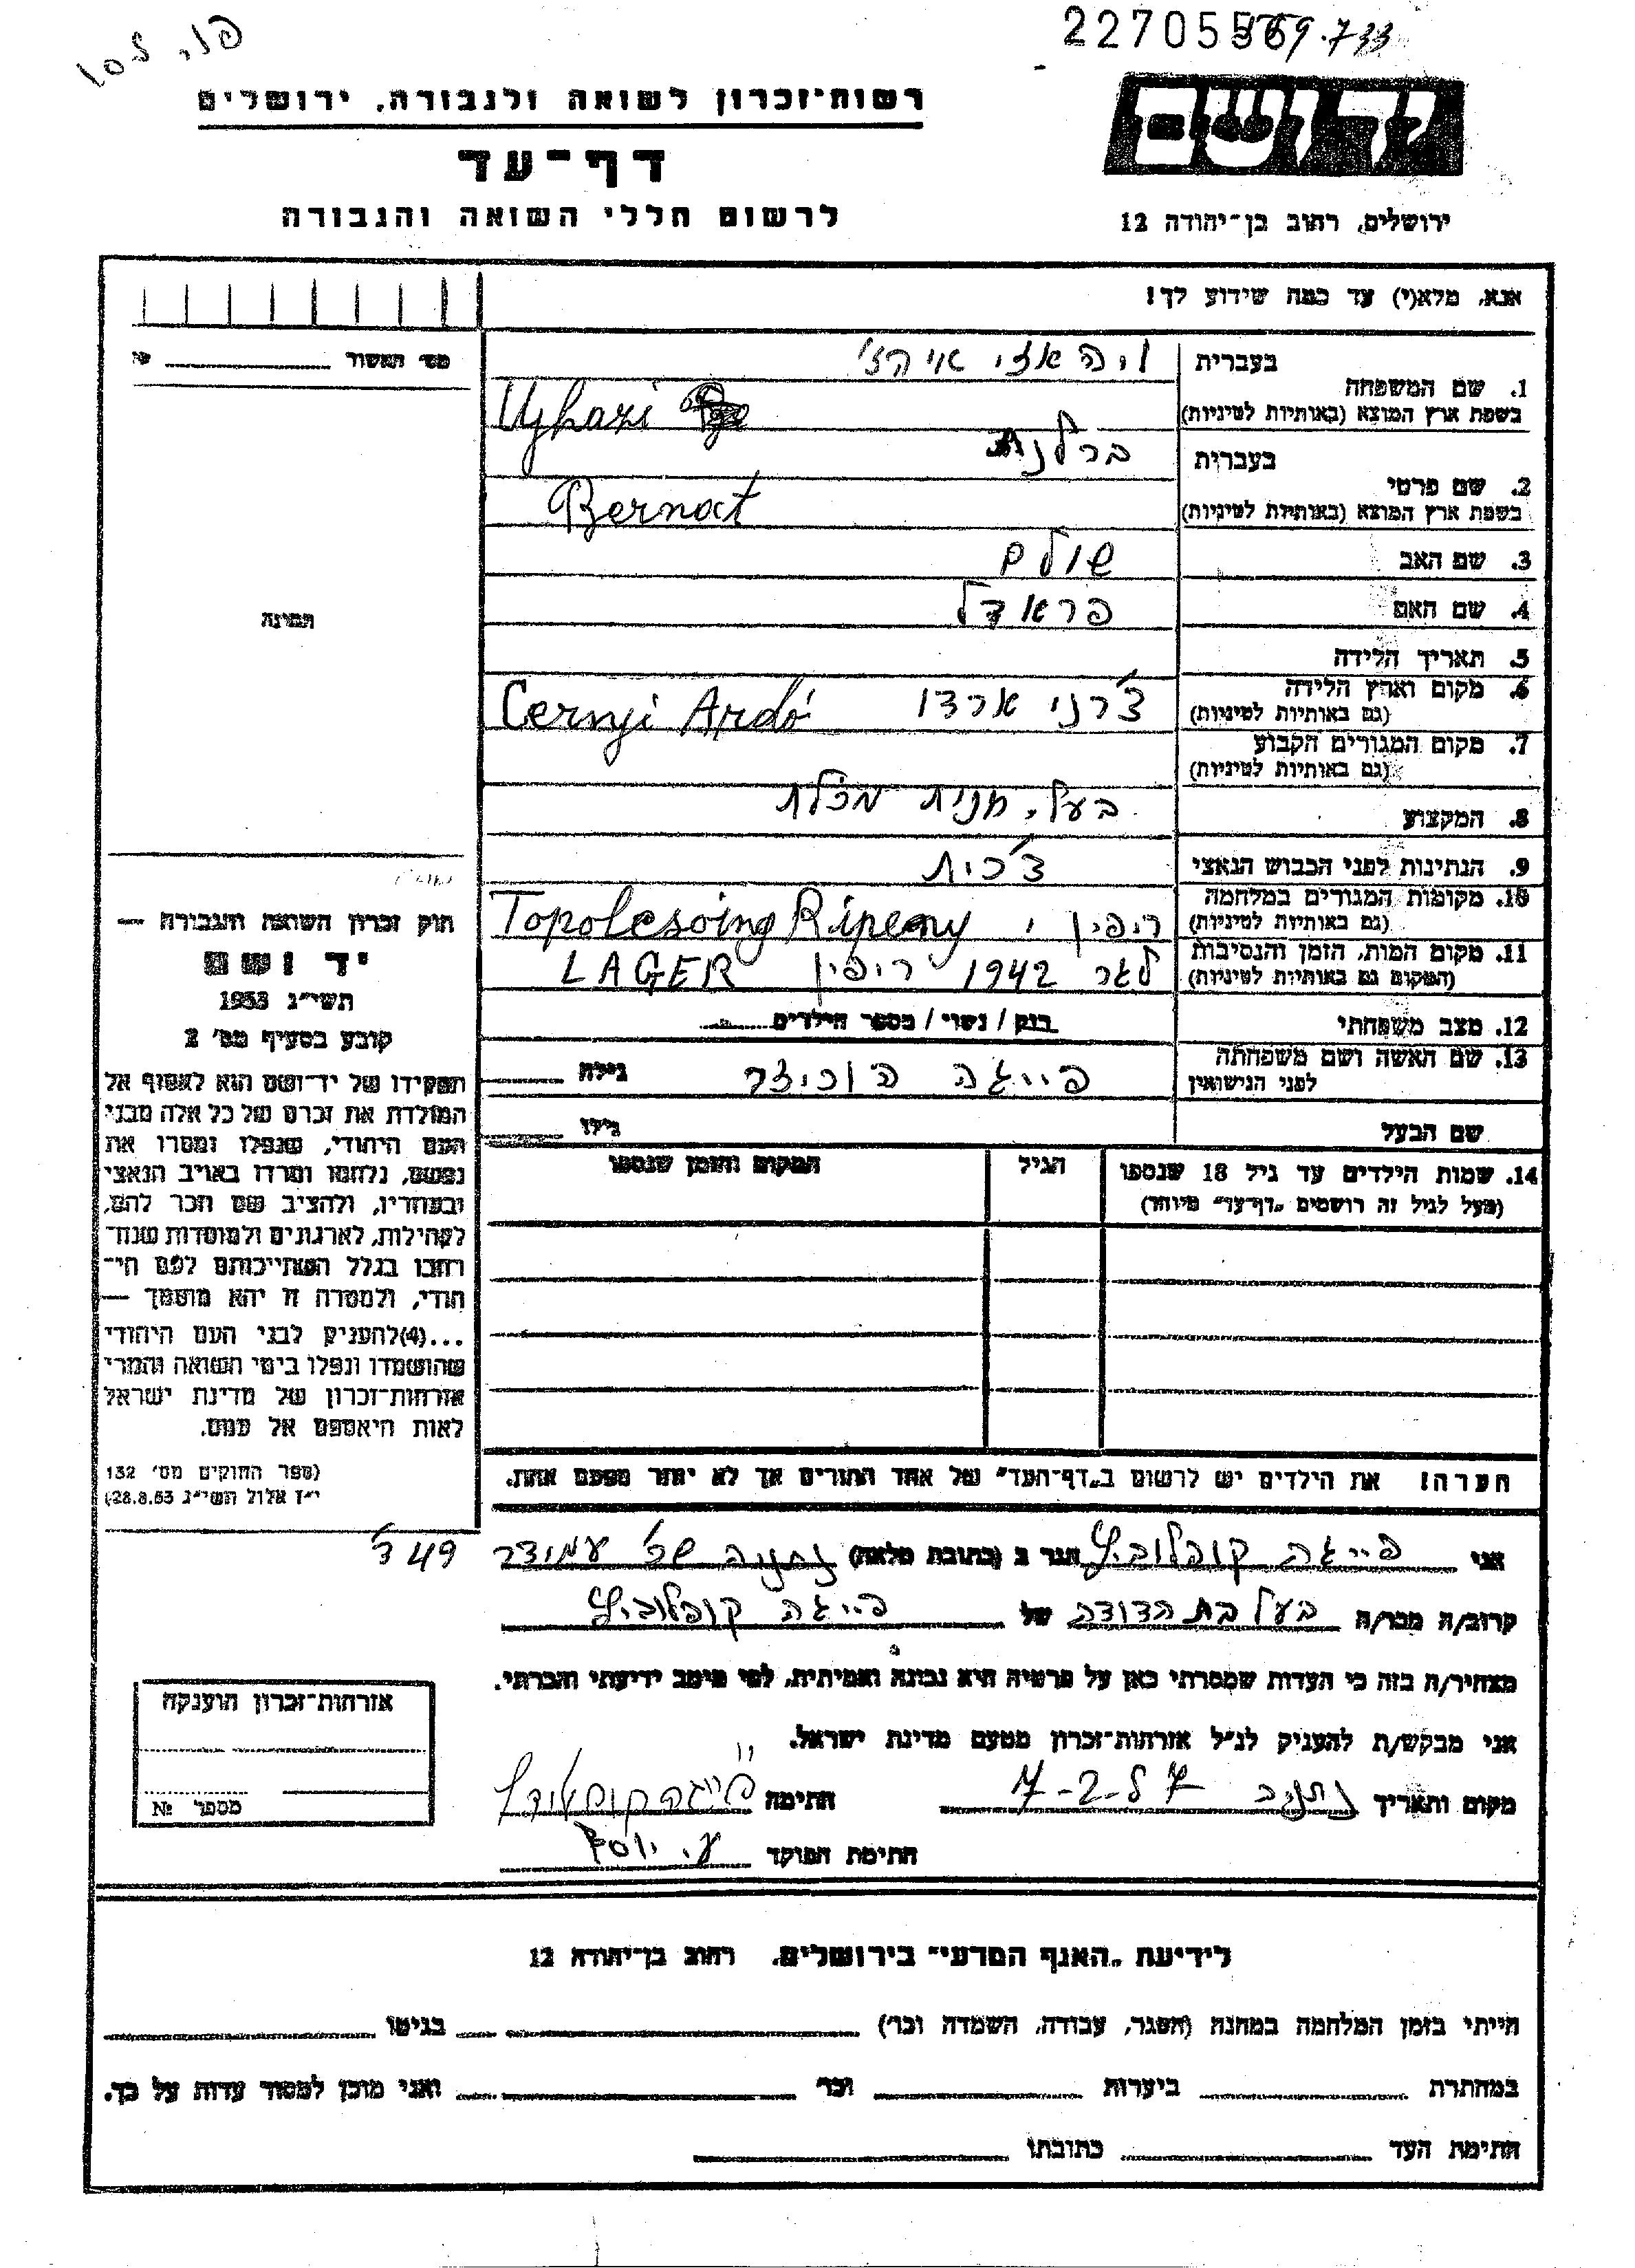 227055
69.733
רשות־זכרון לשואה ולגבורה, ירושלים
דף־עד
לרשום חללי השואה והגבורה
יד ושם
ירושלים, רחוב בן־יהודה 12
אנא, מלא(י) עד כמה שידוע לך!
מס' תאשור №
1. שם המשפחה
בעברית
בשפת ארץ המוצא (באותיות לטיניות)
Ujhazi
2. שם פרטי
בעברית
בשפת ארץ המוצא (באותיות לטיניות)
Bernat
3. שם האב שולם
4. שם האם פראדל
5. תאריך הלידה
6. מקום וארץ הלידה
(גם באותיות לטיניות)
צ'רני ארדו Cernyi Ardó
7. מקום המגורים הקבוע
(גם באותיות לטיניות)
8. המקצוע בעל חנית מכלת
9. הנתינות לפני הכבוש הנאצי צ'כית
10. מקומות המגורים במלחמה
(גם באותיות לטיניות)
ריפין Topolesoing Ripeny
11. מקום המות, הזמן והנסיבות
(המקום גם באותיות לטיניות)
לגר 1942 ריפין LAGER
12. מצב משפחתי רוק / נשוי / מספר הילדים
13. שם האשה ושם משפחתה
לפני הנישואין
פייגה הוכיצר גילה
שם הבעל גילו
14. שמות הילדים עד גיל 18 שנספו
(מעל לגיל זה רושמים "דף־עד" מיוחד)
הגיל
המקום והזמן שנספו
תמונה
חוק זכרון השואה והגבורה —
יד ושם
תשי"ג 1953
קובע בסעיף מס' 2
תפקידו של יד־ושם הוא לאסוף אל
המולדת את זכרם של כל אלה מבני
העם היהודי, שנפלו ומסרו את
נפשם, נלחמו ומרדו באויב הנאצי
ובעוזריו, ולהציב שם וזכר להם,
לקהילות, לארגונים ולמוסדות שנח־
רבו בגלל השתייכותם לעם היה־
ודי, ולמטרה זו יהא מוסמך —
...(4)להעניק לבני העם היהודי
שהושמדו ונפלו בימי השואה והמרי
אזרחות־זכרון של מדינת ישראל
לאות היאספם אל עמם.
(ספר החוקים מס' 132
י"ז אלול תשי"ג 28.8.53)
הערה! את הילדים יש לרשום ב"דף־העד" של אחד ההורים אך לא יותר מפעם אחת.
אני פייגה קופלוביץ הגר ב (כתובת מלאה) נתניה שכ' עמידר 49 ד'
קרוב/ה מכר/ה בעל בת הדודה של פייגה קופלוביץ
מצהיר/ה בזה כי העדות שמסרתי כאן על פרטיה היא נכונה ואמיתית, לפי מיטב ידיעתי והכרתי.
אני מבקש/ת להעניק לנ"ל אזרחות־זכרון מטעם מדינת ישראל.
מקום ותאריך
חתימה
חתימת הפוקד ע. יוסף
אזרחות־זכרון הוענקה
מספר №
לידיעת "האגף המדעי" בירושלים. רחוב בן־יהודה 12
הייתי בזמן המלחמה במחנה (הסגר, עבודה, השמדה וכו') בגיטו
במחתרת ביערות וכו' ואני מוכן למסור עדות על כך.
חתימת העד כתובתו